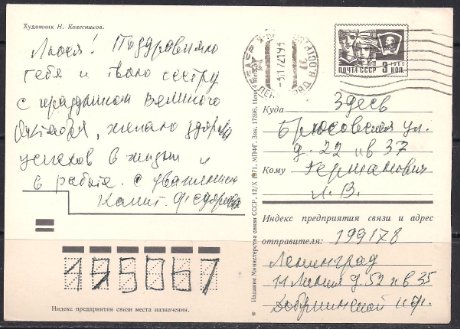 Художник Н. Колесников.
Люся! Поздравляю
тебя и твою сестру
с праздником Великого
Октября, желаю здоровья
успехов в жизни и
в работе. С уважением
Капит. Федоров
195067
Индекс предприятия связи места назначения.
ПОЧТА СССР
3 КОП.
Куда Здесь
Брюсовская ул.
д. 22 кв 37
Кому Германович
Л. В.
Индекс предприятия связи и адрес
отправителя: 199178
Ленинград
11 Линия д. 52 кв 35